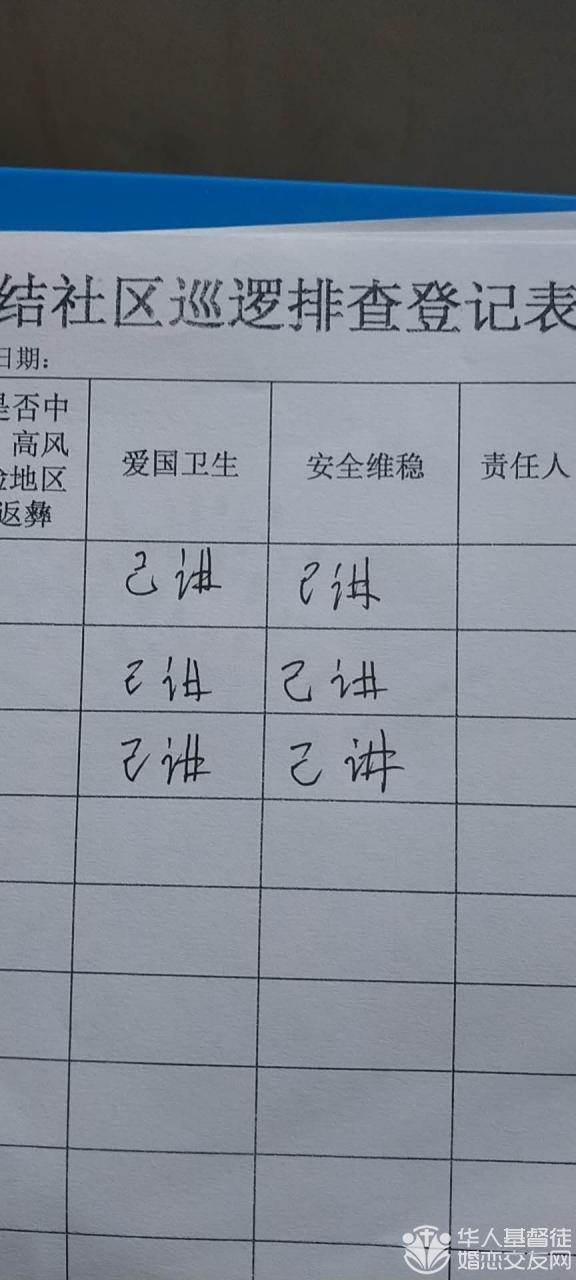 结社区巡逻排查登记表
日期：
是否中
高风
险地区
返彝
爱国卫生
安全维稳
责任人
已讲 已讲
已讲 已讲
已讲 已讲
华人基督徒
婚恋交友网